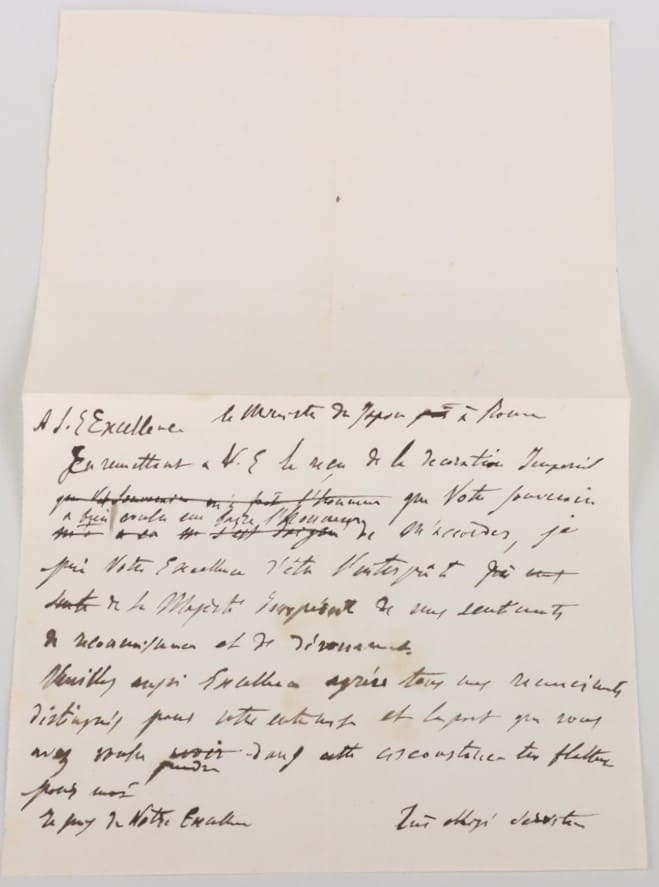 A S. E Excellence le Ministre du Japon à Rome
En remettant a V. E le reçu de la decoration Imperial
que Votre Souverain m'a fait l'honneur que Votre Souverain
a bien voulu me faire l'Honneur
de m'accorder, je
prie Votre Excellence d'être l'interprète
de la Majesté de mes sentiments
de reconnaissance et de dévouement
Veuillez aussi Excellence agréer tous mes remerciments
distingués pour votre et la part que vous
avez voulu avoir dans cette circonstance très flatteuse
prendre
pour moi
de Votre Excellence Très obligé serviteur